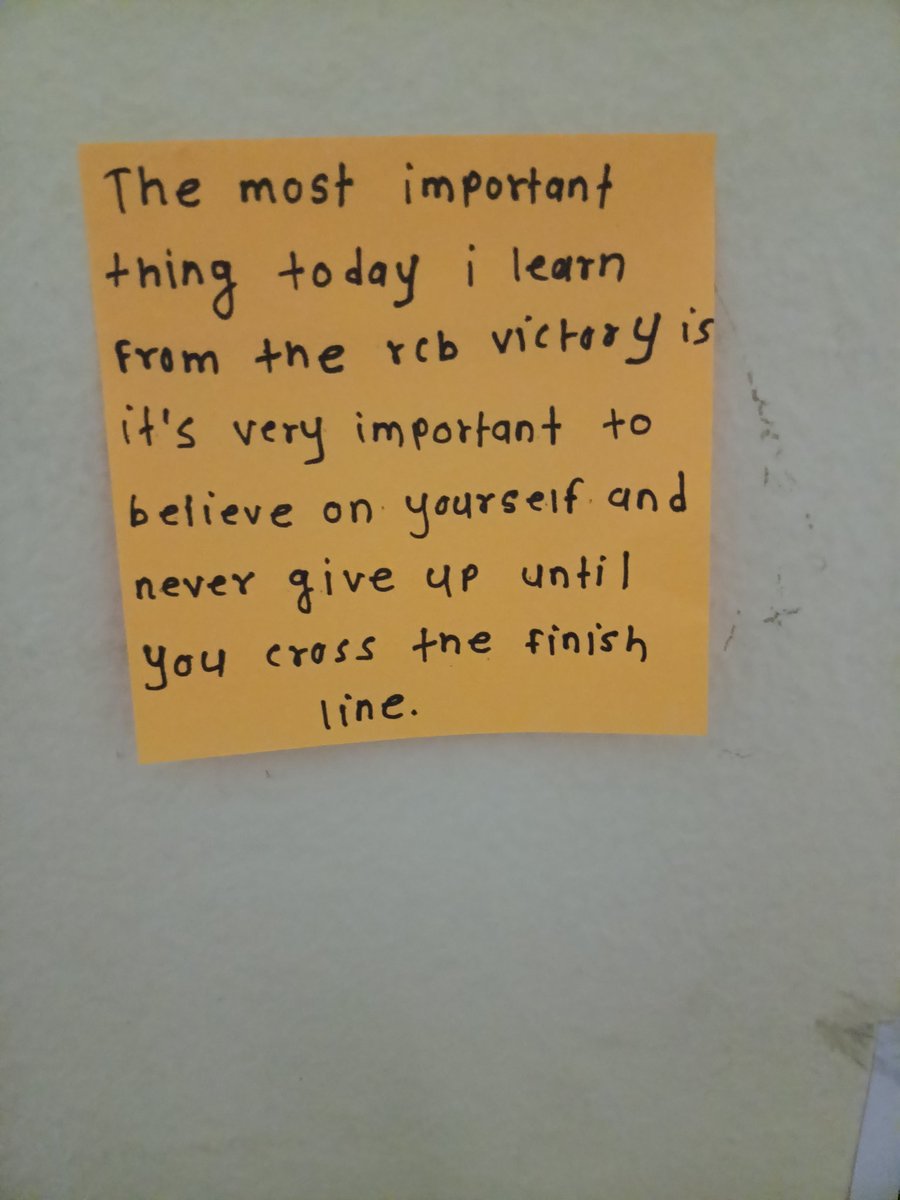 The most important
thing today i learn
from the rcb victory is
it's very important to
believe on yourself and
never give up until
you cross the finish
line.